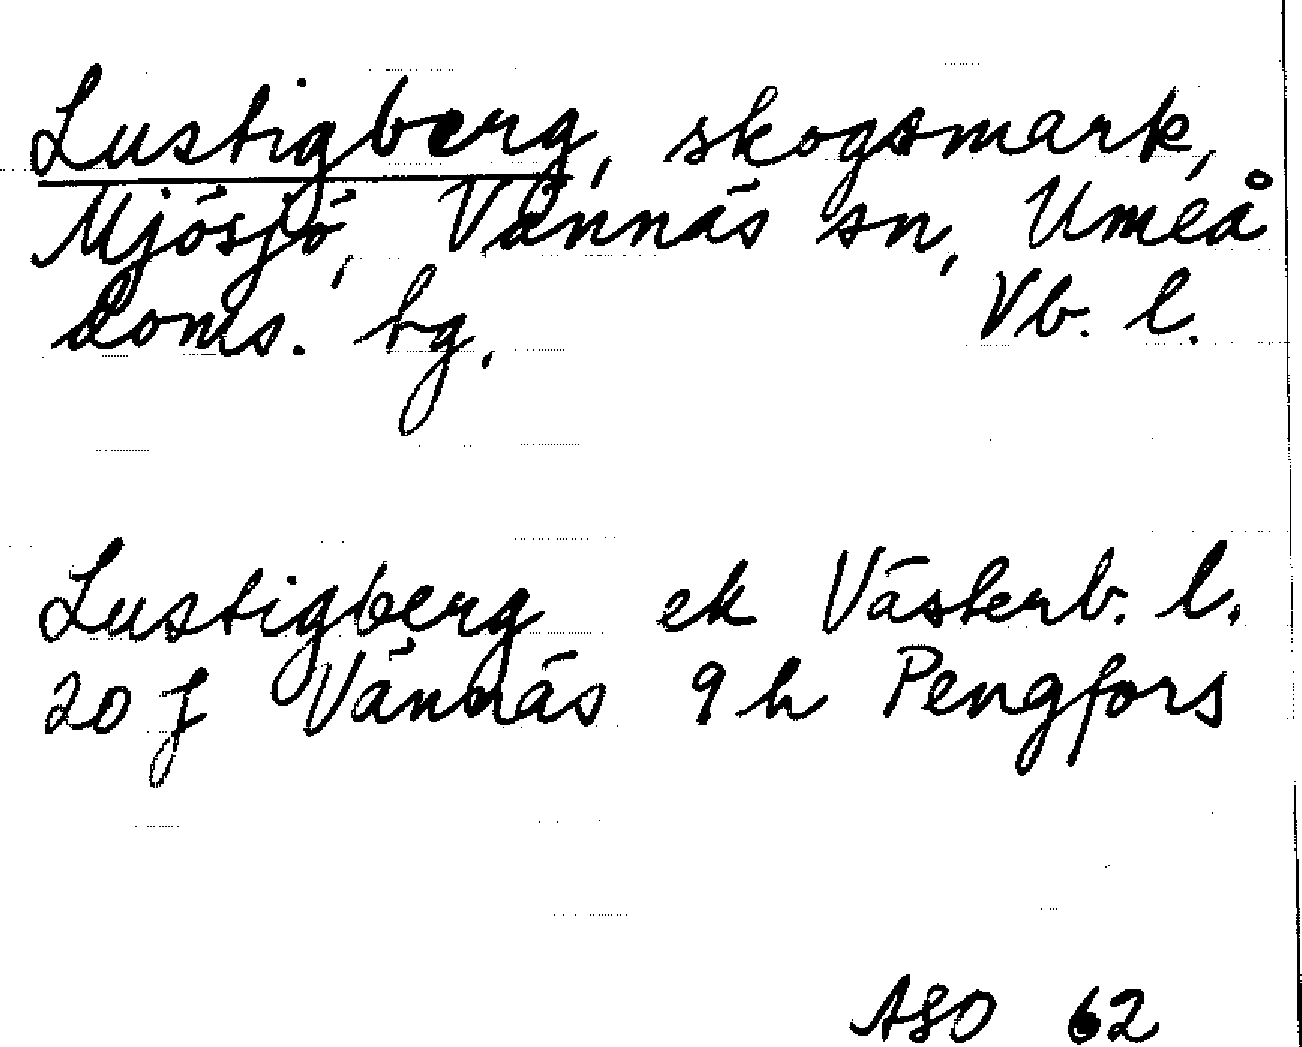 Lustigberg, skogsmark,
Mjösjö, Vännäs sn, Umeå
doms. hg. Vb. l.
Lustigberg ek Västerb. l.
20 J Vännäs 9 h Pengfors
ASO 62